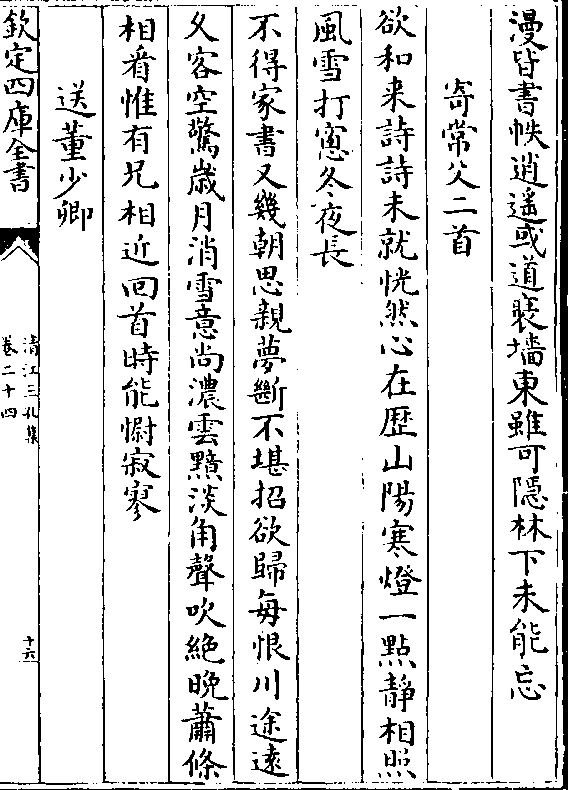 漫皆書帙逍遥或道裘墻東雖可隠林下未能忘
寄常父二首
欲和来詩詩未就恍然心在歴山陽寒燈一點靜相照
風雪打窻冬夜長
不得家書又幾朝思親夢斷不堪招欲歸每恨川途逺
久客空驚歳月消雪意尚濃雲黯淡角聲吹絶晚蕭條
相看惟有兄相近回首時能慰寂寥
送董少卿
欽定四庫全書
清江三孔集
卷二十四
十六